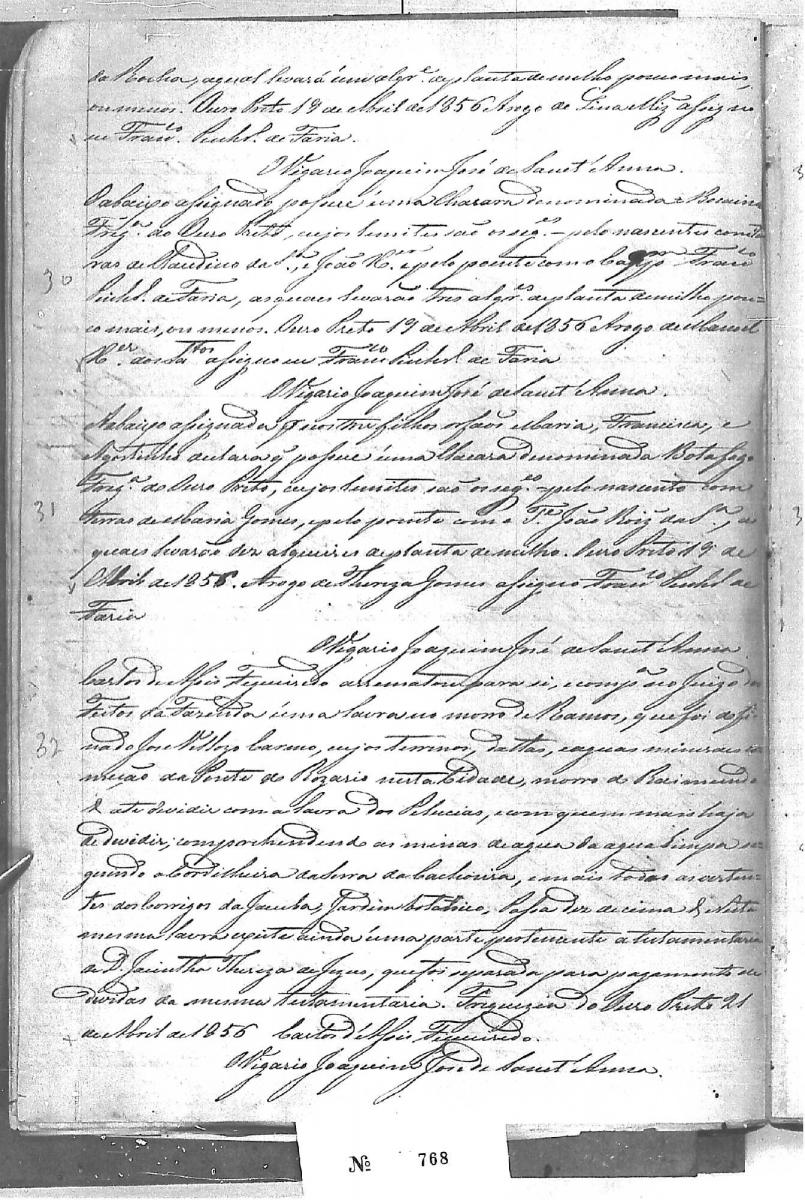 da Rocha, a qual levará úm alqr.e de planta de milho pouco mais,
ou menos. Ouro Preto 19 de Abril de 1856 Arogo de Lina Miz assigno
eu Franc.o Pinhr.o de Faria.
O Vigario Joaquim José de Sanct'Anna.
O abaixo assignado possue úma Chacara denominada Bocaina
Freg.a do Ouro Preto, cujos lemites são os seg.es – pelo nascente com ter
ras de Claudino da S.a, e João R.es, e pelo poente com o Cap.m Franc.o
Pinhr.o de Faria, as quaes levarão tres alqr.es de planta de milho pou-
co mais, ou menos. Ouro Preto 19 de Abril de 1856 Arogo de Manoel
R.es dos S.tos assigno eu Franc.o Pinhr.o de Faria
O Vigario Joaquim José de Sanct'Anna.
30
Aabaixo assignada e os tres filhos orfãos Maria, Francisca, e
Agostinho declara q possue úma Chacara denominada Botafogo
Freg.a do Ouro Preto, cujos lemites são os seg.es – pelo nascente com
terras de Maria Gomes, e pelo poente com o T.e João Roiz da S.a, as
quaes levarão dez alqueires de planta de milho. Ouro Preto 19 de
Abril de 1856. Arogo de Thereza Gomes assigno Franc.o Pinhr.o de
Faria
O Vigario Joaquim José de Sanct'Anna
31
Carlos de Assis Figueiredo arrematou para si, e comp.a no Juizo dos
Feitos da Fazenda úma lavra no morro de Ramos, que foi do fi-
nado José Vellozo Carmo, cujos terrenos, dattas, e aguas mineraes co
meção da Ponte do Rozario nesta Cidade, morro do Raimundo
& até dividir com a lavra dos Pelucias, e com quem mais haja
de dividir; comprehendendo as minas de agua da agua limpa se-
guindo a Cordilheira da serra da Cachoeira, e mais todas as verten-
tes dos corrigos da Jacuba, Jardim Botanico, Passa dez de cima & Nesta
mesma lavra existe ainda úma parte pertencente a testamentaria
de D. Jacintha Thereza de Jezus, que foi separada para pagamento de
dividas da mesma testamentaria. Freguezia do Ouro Preto 21
de Abril de 1856 Carlos d'Assis Figueiredo.
O Vigario Joaquim José de Sanct'Anna.
32
No 768